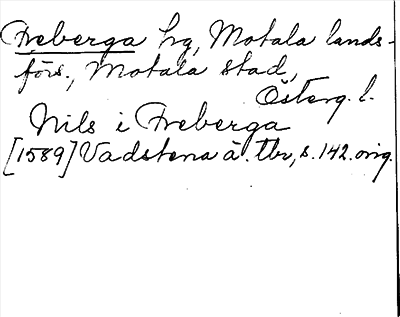 Freberga hg, Motala lands-
förs., Motala stad,
Österg. l.
Nils i Freberga
[1589] Vadstena ä. tbr, s. 142. orig.